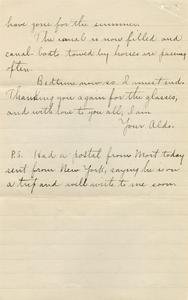 have gone for the summer.
The canal is now filled and
canal boats towed by horses are passing
often.
Bedtime now so I must end.
Thanking you again for the glasses,
and with love to you all, I am
Your Aldo.
P.S. Had a postal from Mort today
sent from New York, saying he is on
a trip and will write to me soon.